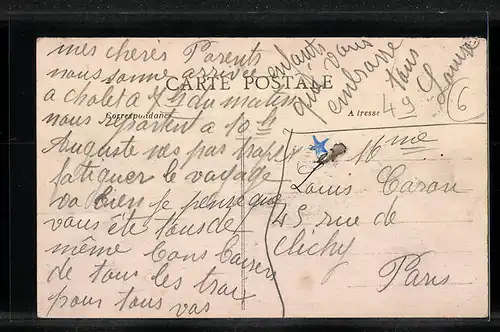 mes cheres Parents
nous somme arrivée
CARTE POSTALE
a cholet a 7 h du matin
Correspondance
nous repartent a 10 h
Auguste nes pas trop
fatiguer le voyage
va bien je pense que
vous ète tous de
même Bons Baisers
de tous les trois
pour tous
vos
enfants
qui vous
embrasse
tous
Louise
49
6
Adresse
Mme
Louis Caron
45 rue de
Clichy
Paris